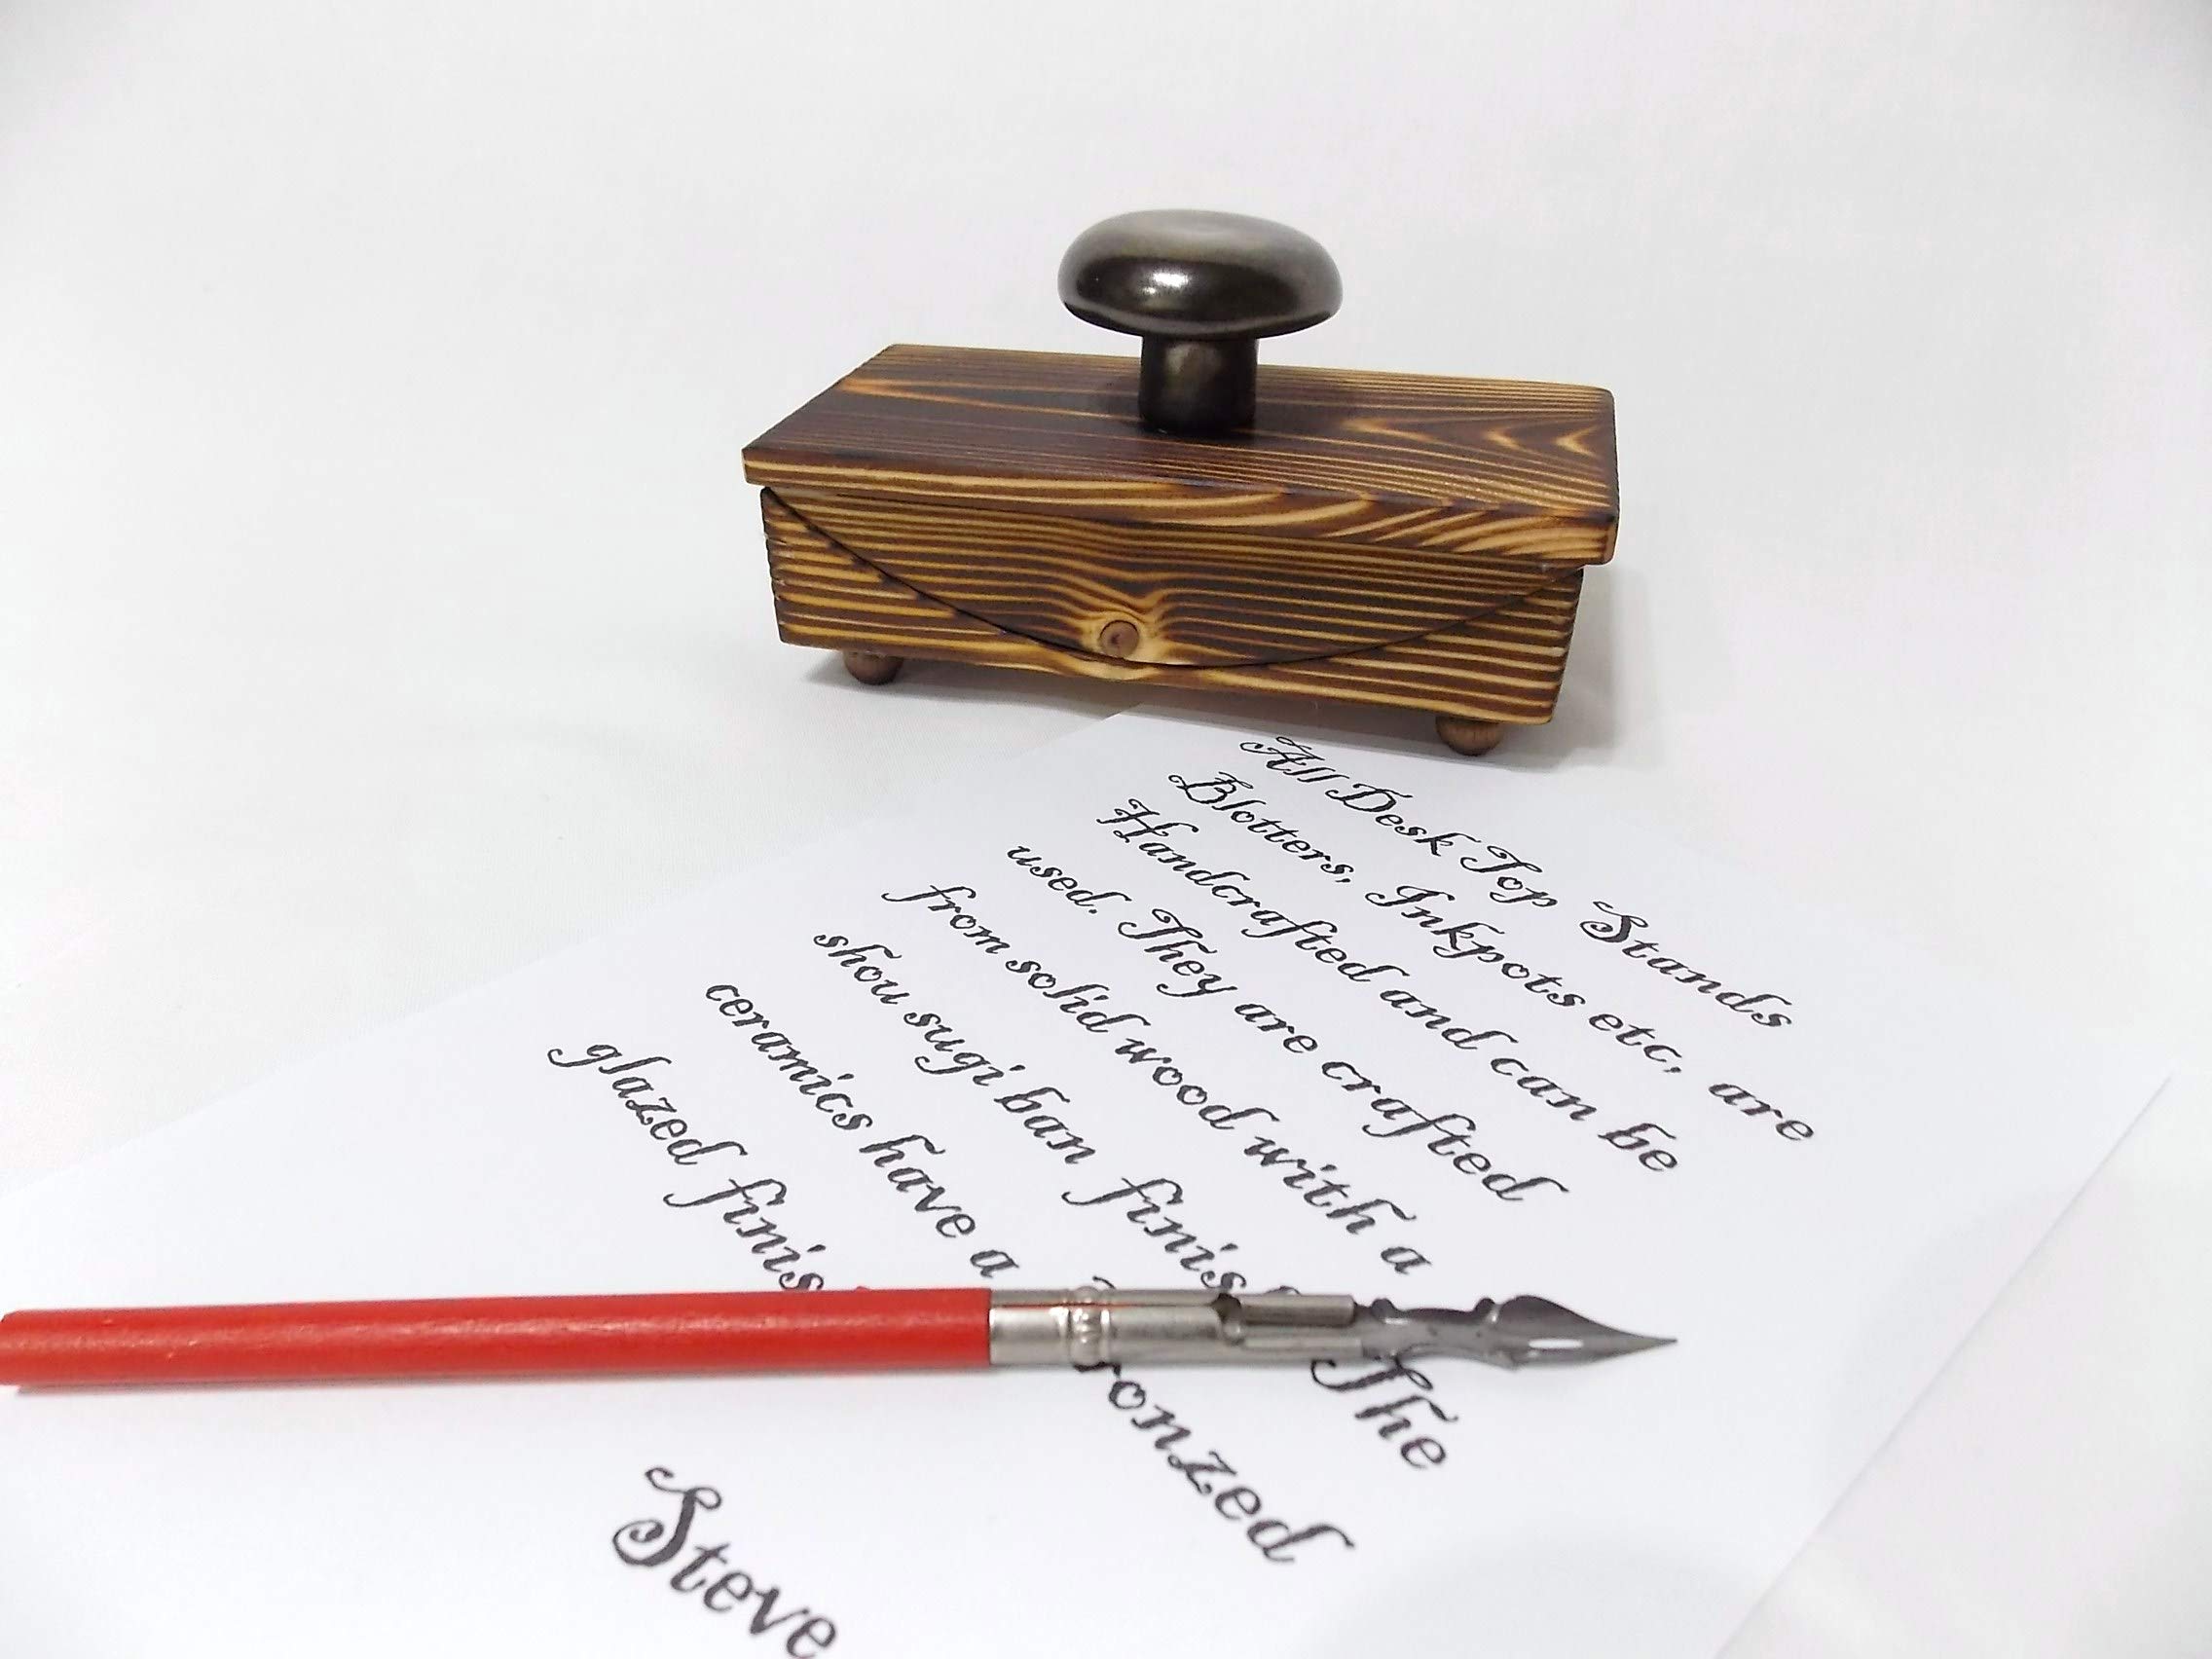 All Desk Top Stands
Blotters, Inkpots etc, are
Handcrafted and can be
used. They are crafted
from solid wood with a
shou sugi ban finish The
ceramics have a bronzed
glazed finis
Steve